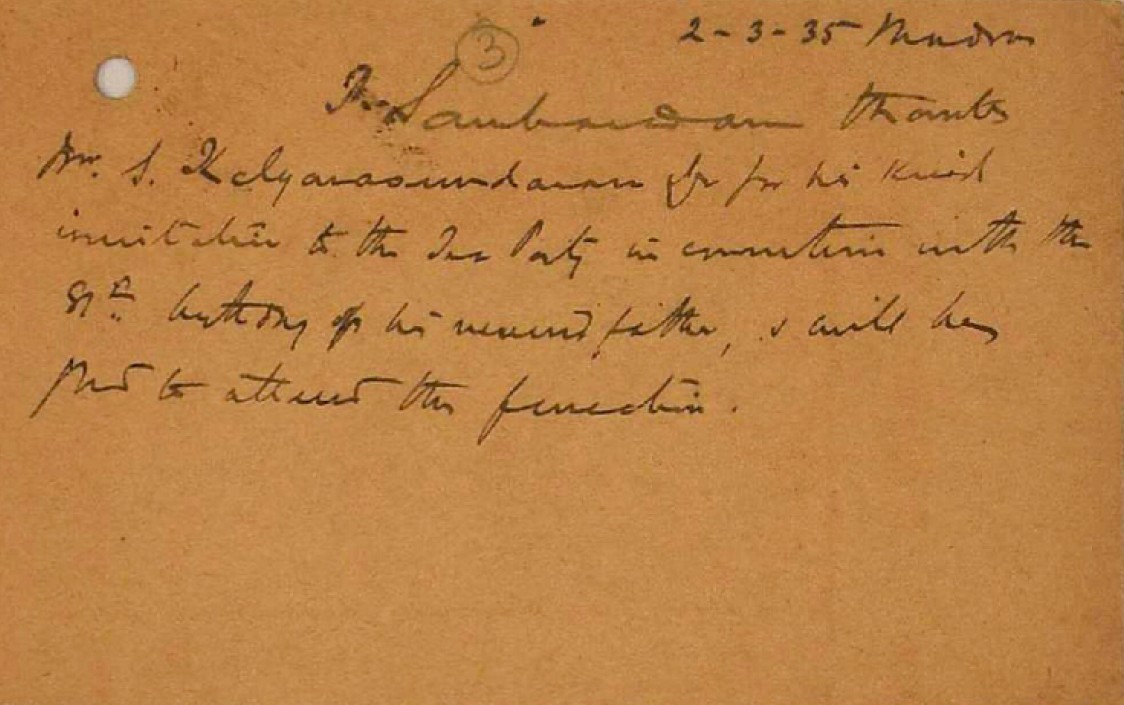 3
2-3-35 Madras
P. Sambandam thanks
Mr. S. Kalyanasundaram for his kind
invitation to the Tea Party in connection with the
81st birthday of his revered father, & will be
glad to attend the function.